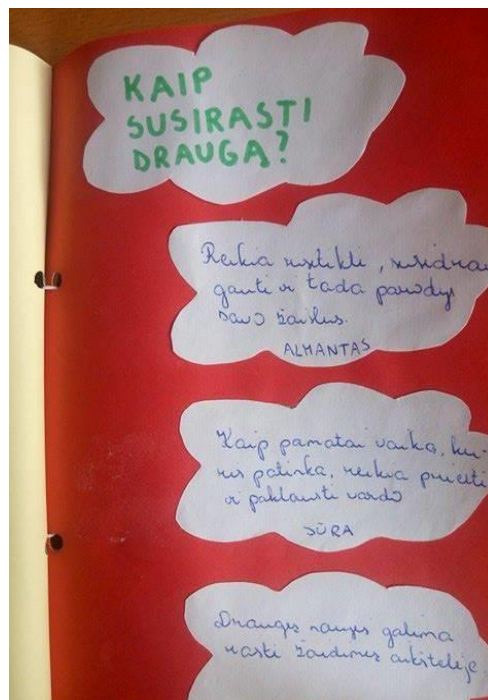 KAIP
SUSIRASTI
DRAUGĄ?
Reikia susitikti, susidrau
gauti ir tada parodys
savo žaislus.
ALMANTAS
Kaip pamatai vaiką, ku-
ris patinka, reikia prieiti
ir paklausti vardo
JŪRA
Draugęs naujęs galima
rasti žaidimęs aikštelėje.